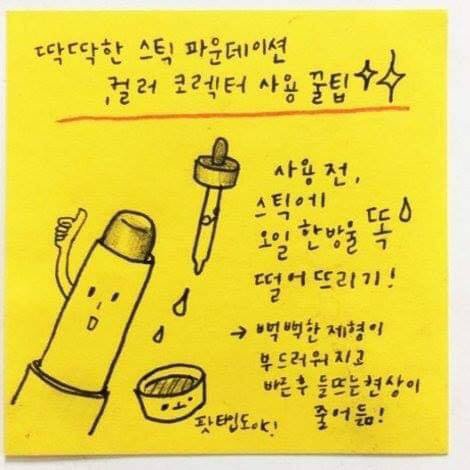 딱딱한 스틱 파운데이션
,컬러 코렉터 사용 꿀팁
사용 전,
스틱에
오일 한방울 똑
떨어 뜨리기!
→ 뻑뻑한 제형이
부드러워 지고
바른후 들뜨는 현상이
줄어듦!
팟타입도 OK!